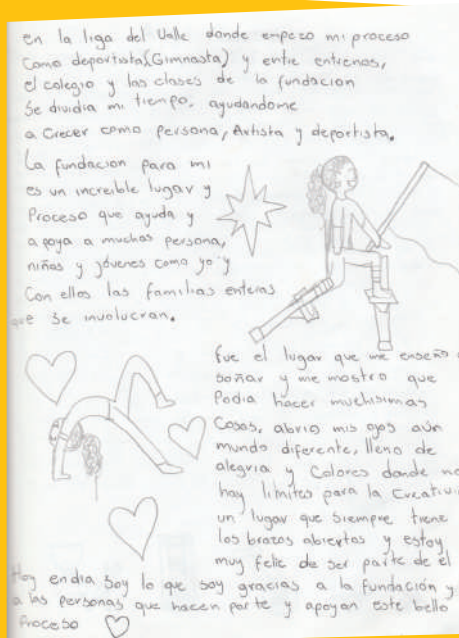 en la liga del Valle donde empezo mi proceso
Como deportista(Gimnasta) y entre entrenos,
el colegio y las clases de la fundacion
Se dividia mi tiempo, ayudandome
a Crecer como persona, Artista y deportista.
La fundacion para mi
es un increible lugar y
Proceso que ayuda y
apoya a muchas persona,
niñas y jóvenes como yo y
Con ellos las familias enteras
que Se involucran.
fue el lugar que me enseño a
Soñar y me mostro que
Podia hacer muchisimas
Cosas, abrio mis ojos aún
mundo diferente, lleno de
alegria y Colores donde no
hay limites para la
un lugar que Siempre tiene
los brazos abiertos y estoy
muy feliz de ser parte de el
Hoy en dia soy lo que soy gracias a la fundación y
a las Personas que hacen parte y apoyan este bello
Proceso